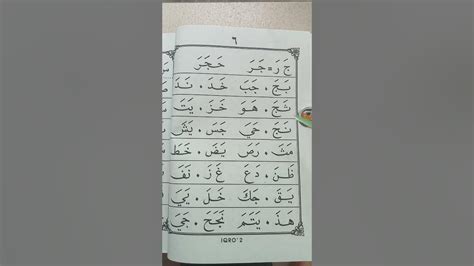 ٦
جَ رَ = جَرَ حَجَرَ
بَجَ . جَبَ خَذَ . نَدَ
ثَجَ . هَوَ خَزَ . يَتَ
نَجَ . حَيَ جَسَ . يَشَ
مَثَ . رَصَ يَضَ . خَطَ
ظَنَ . دَعَ غَزَ . نَفَ
يَقَ . جَكَ خَلَ . يَيَ
هَذَ . يَتَمَ نَجَحَ . جَيَ
IQRO' 2